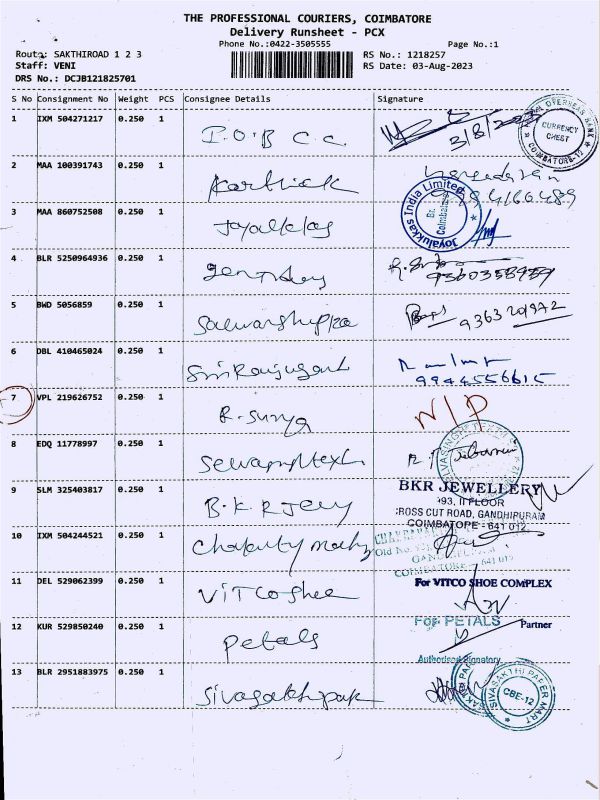 THE PROFESSIONAL COURIERS, COIMBATORE
Delivery Runsheet - PCX
Phone No.:0422-3505555 Page No.:1
Route: SAKTHIROAD 1 2 3 RS No.: 1218257
Staff: VENI RS Date: 03-Aug-2023
DRS No.: DCJB121825701
S No Consignment No Weight PCS Consignee Details Signature
1 IXM 504271217 0.250 1 I.O.B C.C. 3/8/2023
OVERSEAS BANK
CURRENCY
CHEST
COIMBATORE-12
2 MAA 100391743 0.250 1 Karthick
3 MAA 860752508 0.250 1 Joyallukas
Joyalukkas India Limited
Br.
Coimbatore
4 BLR 5250964936 0.250 1
9360358959
5 BWD 5056859 0.250 1 9363201972
6 DBL 410465024 0.250 1
9944556615
7 VPL 219626752 0.250 1 R. Surya N/P
8 EDQ 11778997 0.250 1
9 SLM 325403817 0.250 1 B.K.R Jery
BKR JEWELLERY
93, II FLOOR
CROSS CUT ROAD, GANDHIPURAM
COIMBATORE - 641 012
10 IXM 504244521 0.250 1
Old No.
COIMBATORE - 641 012
11 DEL 529062399 0.250 1 ViTCo Shee
For VITCO SHOE COMPLEX
Partner
12 KUR 529850240 0.250 1 Petals
For PETALS
Authorised Signatory
13 BLR 2951883975 0.250 1
SIVASAKTHI PAPER MART
CBE-12